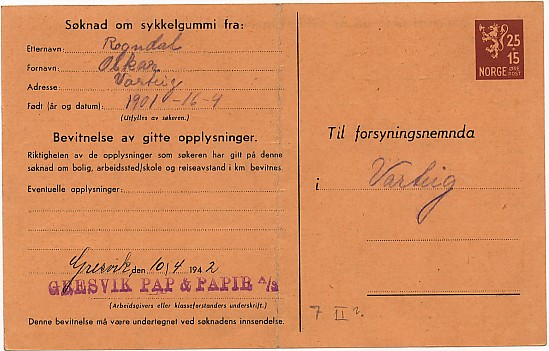 Søknad om sykkelgummi fra:
Etternavn: Rondal
Fornavn: Oskar
Adresse: Varteig
Født (år og datum): 1901-16-4
(Utfylles av søkeren.)
Bevitnelse av gitte opplysninger.
Riktigheten av de opplysninger som søkeren har gitt på denne
søknad om bolig, arbeidssted/skole og reiseavstand i km bevitnes.
Eventuelle opplysninger:
Gresvik, den 10/4 1942
GRESVIK PAP & PAPIR A/S
(Arbeidsgivers eller klasseforstanders underskrift.)
Denne bevitnelse må være undertegnet ved søknadens innsendelse.
25
+15
NORGE ØRE POST
Til forsyningsnemnda
i Varteig
7 II